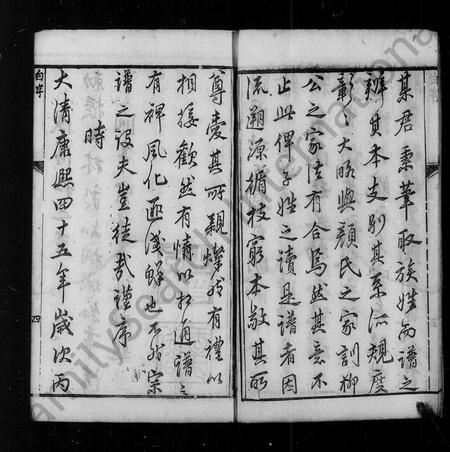 某君秉筆取族姓而譜之
辨其本支別其系派規度
彰之大略與顏氏之家訓柳
公之家法有合焉然其意不
止此俾子姓之讀是譜者因
流溯源循枝窮本敬其所
尊愛其所親燦然有禮以
相接歡然有情以相通譜之
有裨風化匪淺鮮也不然宗
譜之設夫豈徒哉謹序
時
大清康熙四十五年歲次丙
白字
四
FamilySearch International